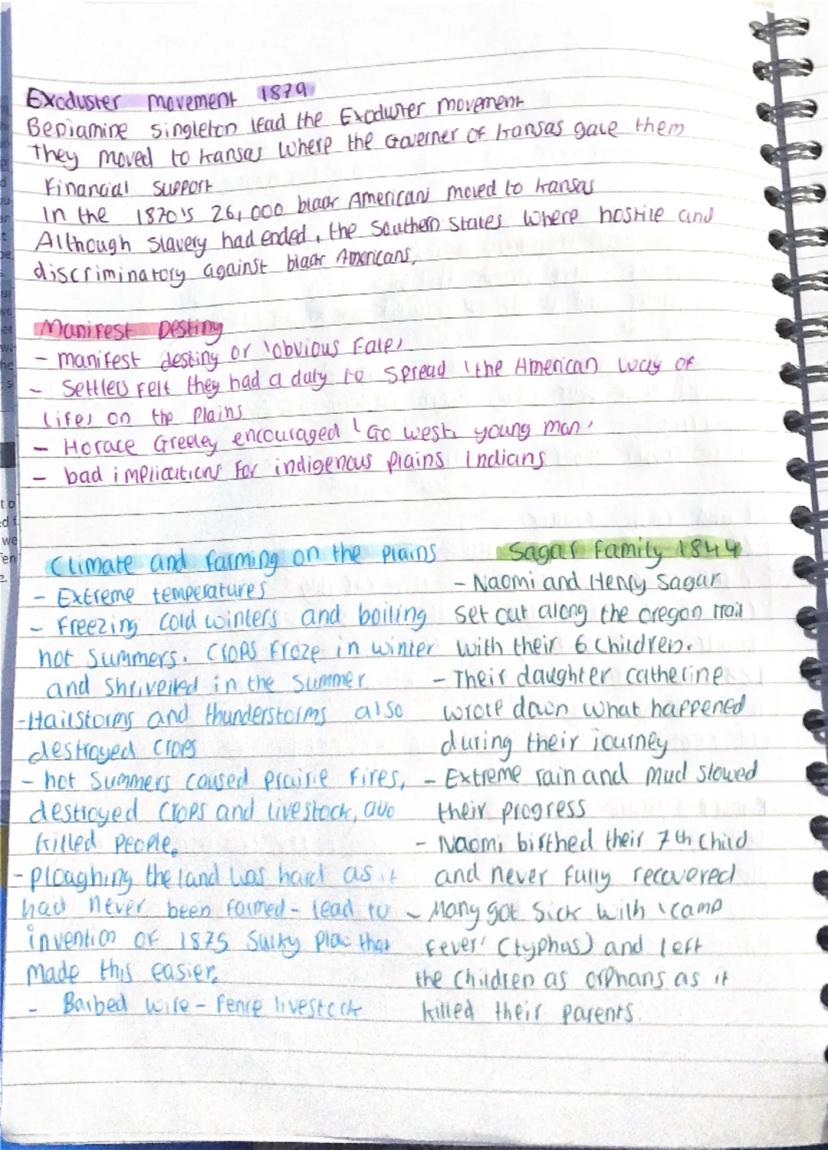 Exoduster movement 1879
Benjamine Singleton lead the Exoduster movement
They moved to Kansas where the Governer of Kansas gave them
Financial support
In the 1870's 26,000 black Americans moved to Kansas
Although slavery had ended, the Southern States where hostile and
discriminatory against black Americans.
Manifest Destiny
- manifest destiny or 'obvious Fate'
- Settlers felt they had a duty to spread 'the American way of
life' on the Plains
- Horace Greeley encouraged 'Go west, young man'
- bad implications for indigenous plains Indians
Climate and farming on the plains
- Extreme temperatures
- Freezing cold winters and boiling
hot Summers. Crops froze in winter
and shriveled in the summer.
- Hailstorms and thunderstorms also
destroyed crops
- hot Summers caused prairie fires,
destroyed crops and livestock, also
killed people.
- ploughing the land was hard as it
had never been farmed - lead to
invention of 1875 Sulky plow that
made this easier.
- Barbed wire - Fence livestock
Sagar Family 1844
- Naomi and Henry Sagar
set out along the oregon trail
with their 6 children.
- Their daughter catherine
wrote down what happened
during their journey
- Extreme rain and mud slowed
their progress
- Naomi birthed their 7th child
and never fully recovered
- Many got sick with 'camp
fever' (typhus) and left
the children as orphans as it
killed their parents.